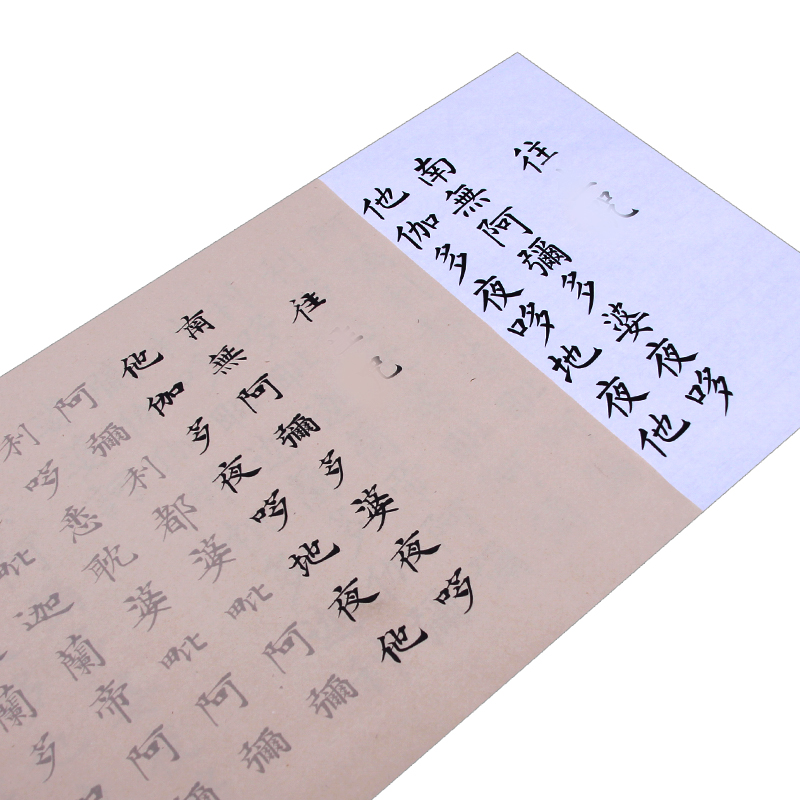 往
南無阿彌多婆夜哆
他伽多夜哆地夜他
往
南無阿彌多婆夜哆
他伽多夜哆地夜他
阿彌利都婆毗阿彌
利哆悉耽婆毗阿彌
毗迦蘭帝阿
蘭多